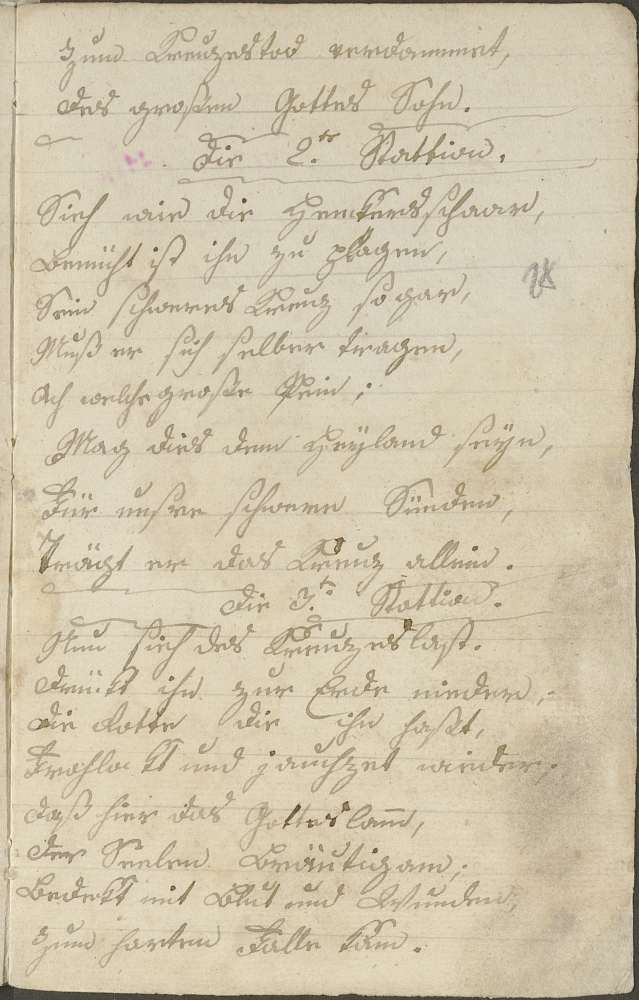 Zum Kreuzestod verdammet,
des großen Gottes Sohn.
Die 2.te Stattion.
Sieh wie die Henkersschaar,
bemüht ist ihn zu plagen,
Sein schweres Kreuz sogar,
Muß er sich selber tragen,
Ach welche große Pein;
Mag dies dem Heyland seyn,
Für unsre schwere Sünden,
Trägt er das Kreuz allein.
Die 3.te Stattion.
Nun sieh des Kreuzeslast.
drückt ihn zur Erde nieder,
die Rotte die ihn haßt,
Frohlockt und jauchzet wieder,
daß hier das Gotteslam̄,
der Seelen Bräutigam,
Bedekt mit Blut und Wunden,
Zum harten Falle kam.